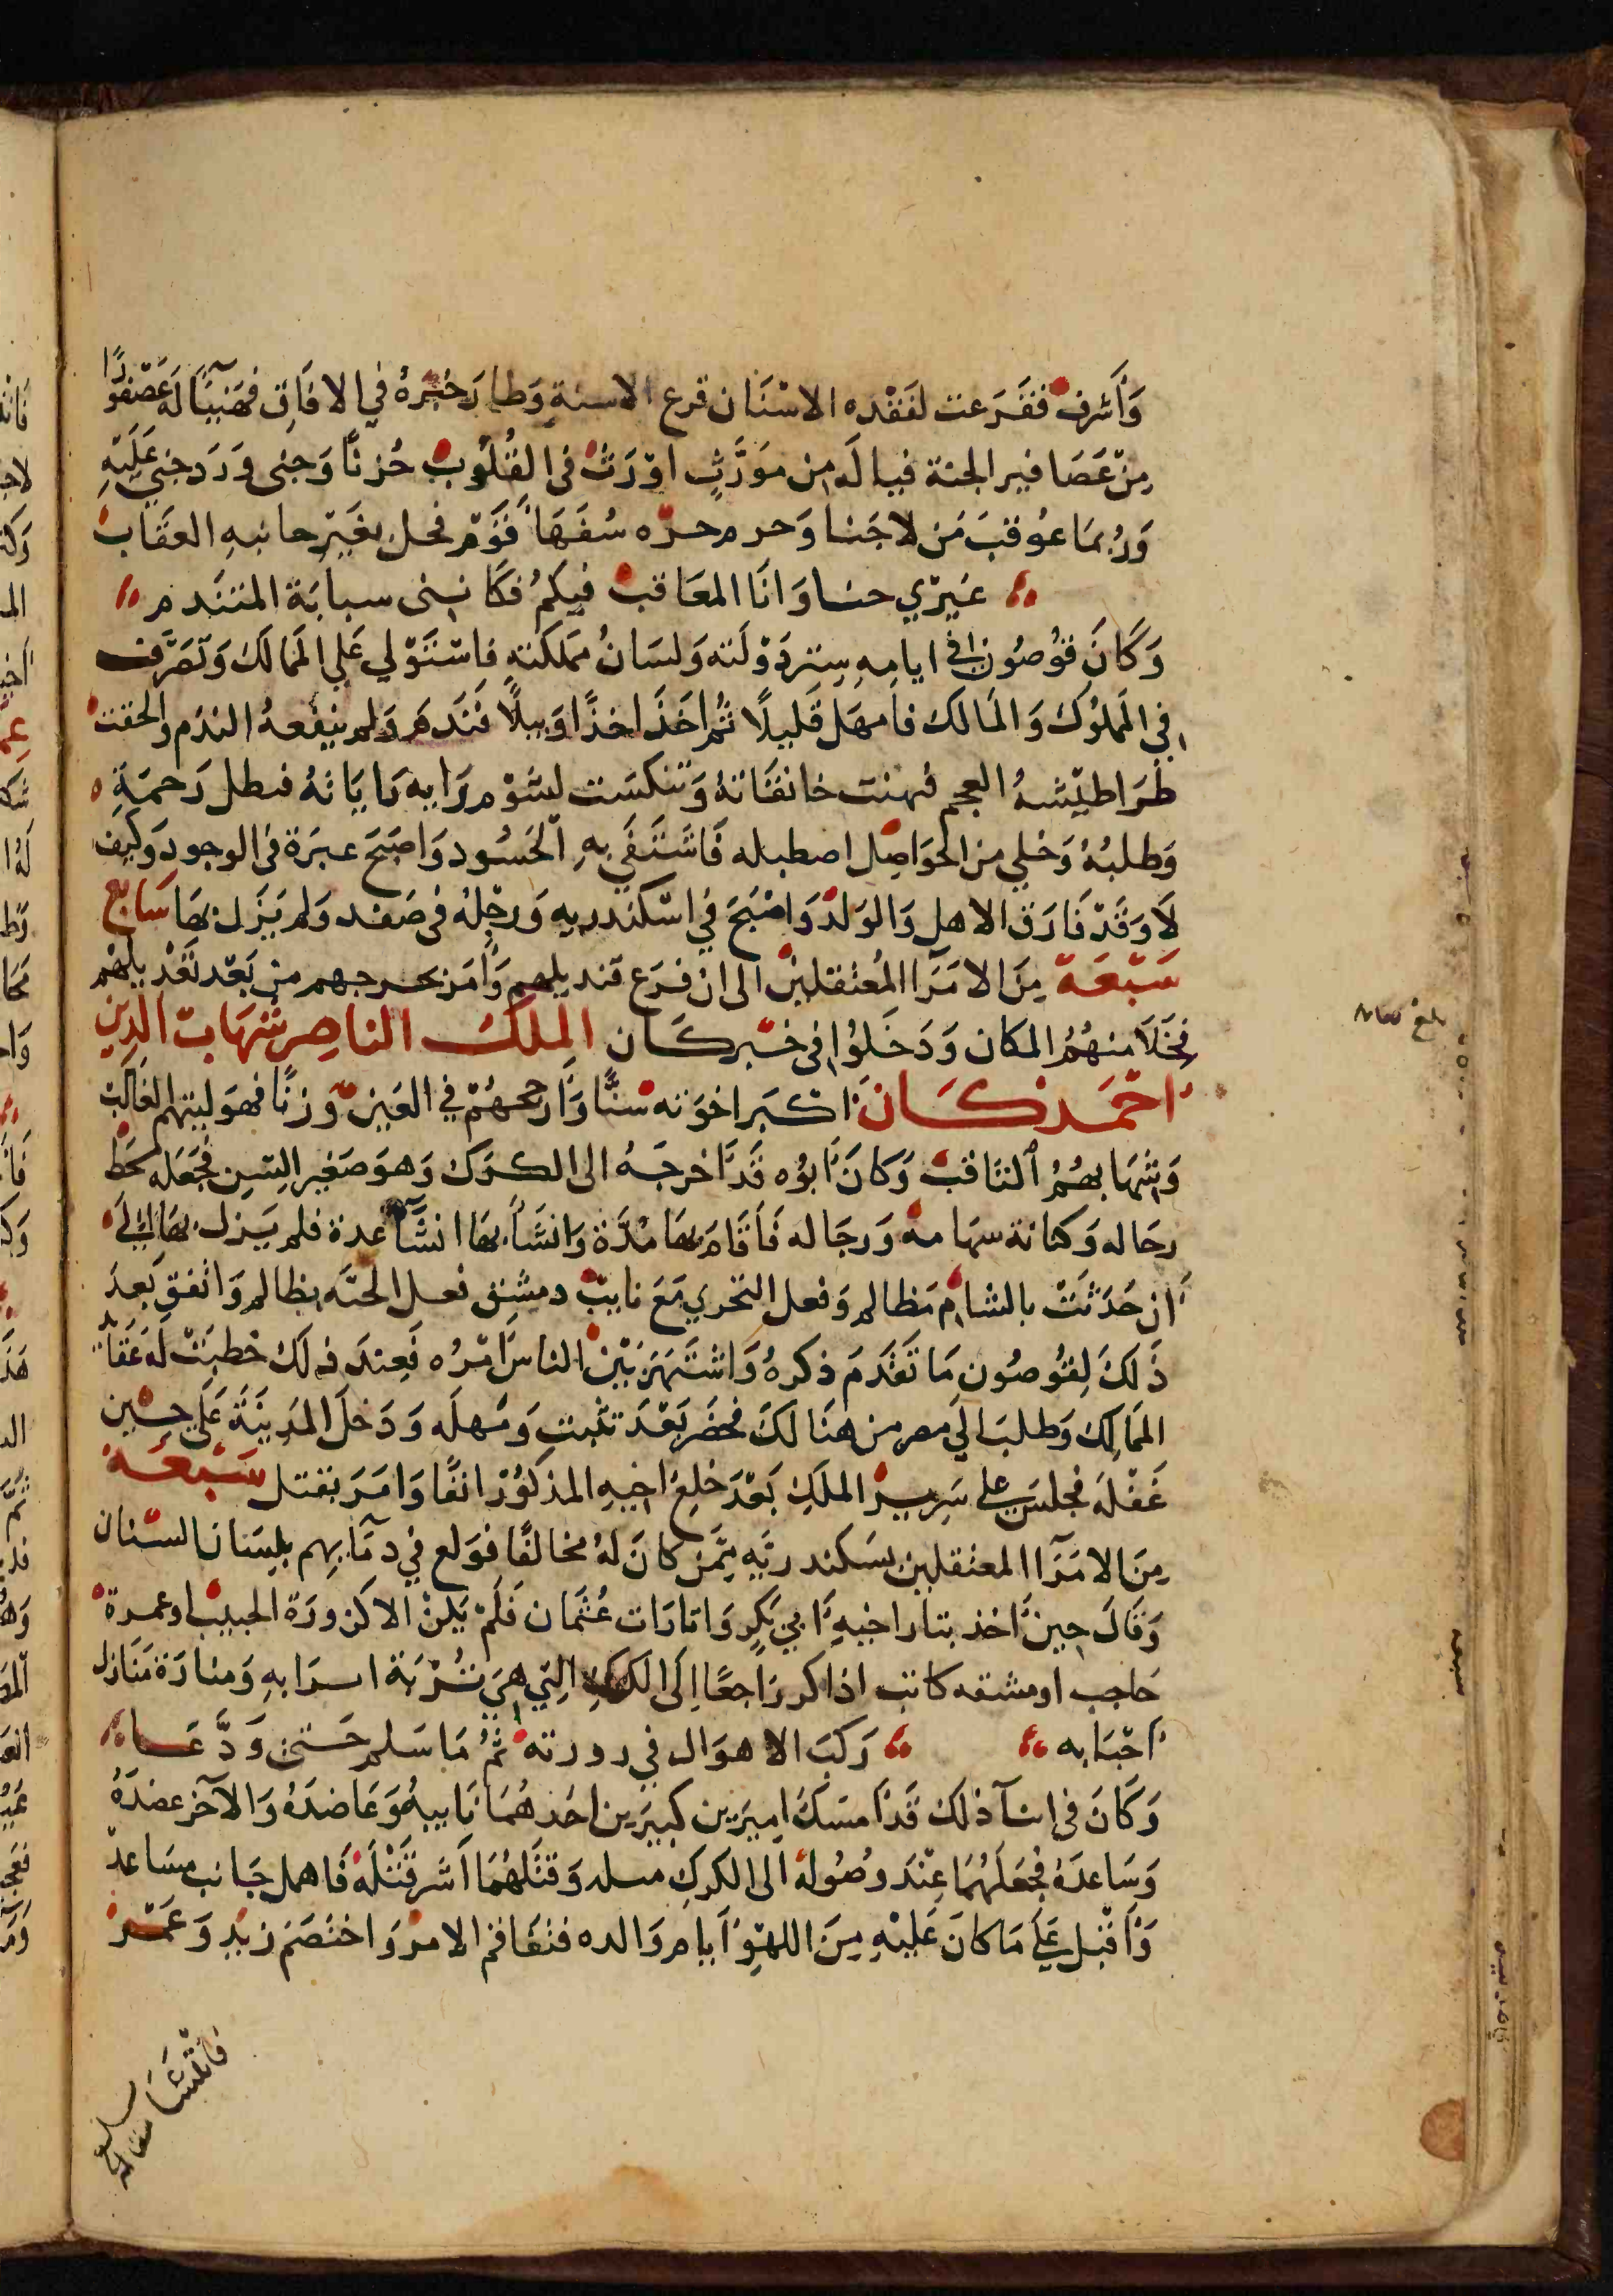 وَأَشرف فَقَرَعت لفَقْده الاسْنَان قرع الاسنةِ وَطار خبرهُ في الافَاقِ فهَنيئًا لَهَ عَصْفورًا
مِنْ عَصَافير الجنة فيالَه من مَوَرَّثٍ اوْرَثَ في القُلُوب حُزنًا وَجنى وَرَد جني عَلَيْهِ
وَرُبمَا عُوقبَ مَن لاجَنا وَحر م جرّه سُفَهَاَ قَوَم فحل بغَيْر جانيهِ العقَاب
غيرْي جنا وَانَا المعَاقبُ فيكُم فكَانني سبابَة المتنَدم
وَكَانَ قوُصُون في ايامهِ سِترَ دَوْلَته وَلسَانُ مملكَتهِ فاسْتَوْلي عَلي المَمالكَ وَتصَرَّف
في المَملوكَ وَالممَالك فاَمهَل قَليلًا ثُمَّ اخَذَ اخذًا وَبيلًا فَنَدمَ وَلم ينفَعهُ الندَم والحقت
طَراطيْشهُ العجم فنهبَت خانقَاتهُ وَتنكسَت لشَوْم رَايه رَايَاتهُ فبطل رَحمَتهِ
وَطلبُهُ وَخلي من الحَوَاصِل اصطبله فَاشتَفَي بهِ الحَسُود وَاصبَحَ عبرَة في الوجود وَكَيَف
لاَ وَقَدْ فَارَق الاهل وَالوَلدْ وَاصْبَحَ في اسْكندريه وَرجْلهُ في صَفد وَلم يَزَل بهَا سَابع
سَبْعَة مِنَ الامَرَآ المُعتَقلينْ الى ان فرَع قنديلهم وَأمَر بخرجهم من بَعْد تعْديلهْم
فخَلاَ منهُمُ المكان وَدَخلُوا في خبر كَان الملك الناصِر شهَابُ الدين
احْمَد كَانَ اكبَر اخوَته سنًّا وَأرجحهُمْ في العَين وَزنًا فهوَ ليثهم الغَالبُ
وَشهَابهُمُ الثاقبُ وَكانَ أبوُه قَدْ أخرجَهُ الى الكرَك وَهوَ صَغير السِّن فجَعَله محَط
رحَاله وَكنانة سهَامهْ وَرجَاله فَاَقَامَ بهَا مُدَّة وَانشَاَ بهَا انشَآ عدة فلم يَزل بهَا الَي
أن حُدَثتْ بالشام مَظالم وَفعل التخري مَعَ نايبُ دمشق فعل الحتَه بظالم وَاتفق بَعدَ
ذَلكَ لقُوصُون مَا تَقَدمَ ذكرهُ وَاشتهَرَ بَيْن الناس اَمْرُه فَعِندَ ذلك خطبتْ لَهَ عَقَايل
المَمالك وَطلبَ الي مصر من هنَالكَ فحضَر بَعْدَ تثبتٍ وَمهلَه وَدَخلَ المَدينَة عَلَى حيْن
غَفْلَه فجلسَ علي سَرير الملكِ بَعْدَ خلع اخيهِ المذكوُر انفًا وَامَرَ بقتل سَبْعَة
مِنَ الامَرَآ المعتقلين بسَكندريَّهِ مِمَّن كانَ لهُ مخالفًا فوَلع في دمَآيهم بلسَان السنان
وَقَالَ حِينْ أخذ بتار اخيهِ أبي بَكرٍ وَاتارَات عُثمَان فَلَم يَكنْ الا كزورَة الحبيب اوغمزة
حَاجب اومشقه كاتب اذا كر رَاجعًا الَى الكرك التي هيَ تُرْبَة اسرَابهِ وَمنارَة مَنَازل
احْبَابه رَكبَ الاهوَال في زورته ثمُ مَا سَلم حَتي وَدَّعَا
وَكَانَ في اثنآ ذلك قَدْ أمسَكَ اميرَين كبيرَين احَدهُمَا نَايبهُ وَعَاضدَهُ وَالآخر عضدَهُ
وَسَاعدَهُ فجعَلهُمَا عِنْدَ وصُولهْ الى الكركِ مسله وَقتَلهُمَا أشَر قَتْلَهْ فَاهمل جَانب مسَاعدْ
وَأقْبل عَلي مَا كَانَ عَلَيْهِ مِنَ اللهْوِ أيام وَالده فتفَاقم الامْرَ وَاختصَم زيْد وَعَمْرو
بلغ مقابله